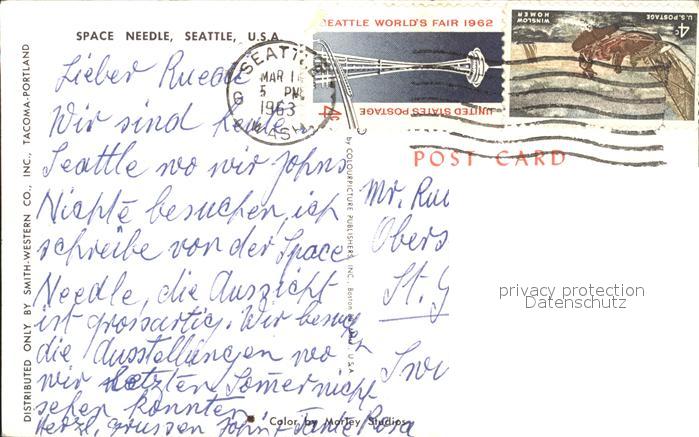 SPACE NEEDLE, SEATTLE, U.S.A.
Lieber Ruedi
Wir sind heute
Seattle wo wir Johns
Nichte besuchen, ich
schreibe von der Space
Needle, die Auszicht
ist grossartig. Wir besuchen
die Ausstellungen wo
wir letzten Sommer nicht
sehen konnten
Herzl. grüssen John + Tante Rosa
DISTRIBUTED ONLY BY SMITH-WESTERN CO., INC., TACOMA-PORTLAND
Color by Morley Studios
by COLOURPICTURE PUBLISHERS, INC., Boston U.S.A.
SEATTLE
MAR 14
5 PM
1963
WASH
SEATTLE WORLD'S FAIR 1962
4¢ UNITED STATES POSTAGE
WINSLOW HOMER
U.S. POSTAGE
4¢
POST CARD
Mr. Rue
Obers
St. G
Swi
privacy protection
Datenschutz